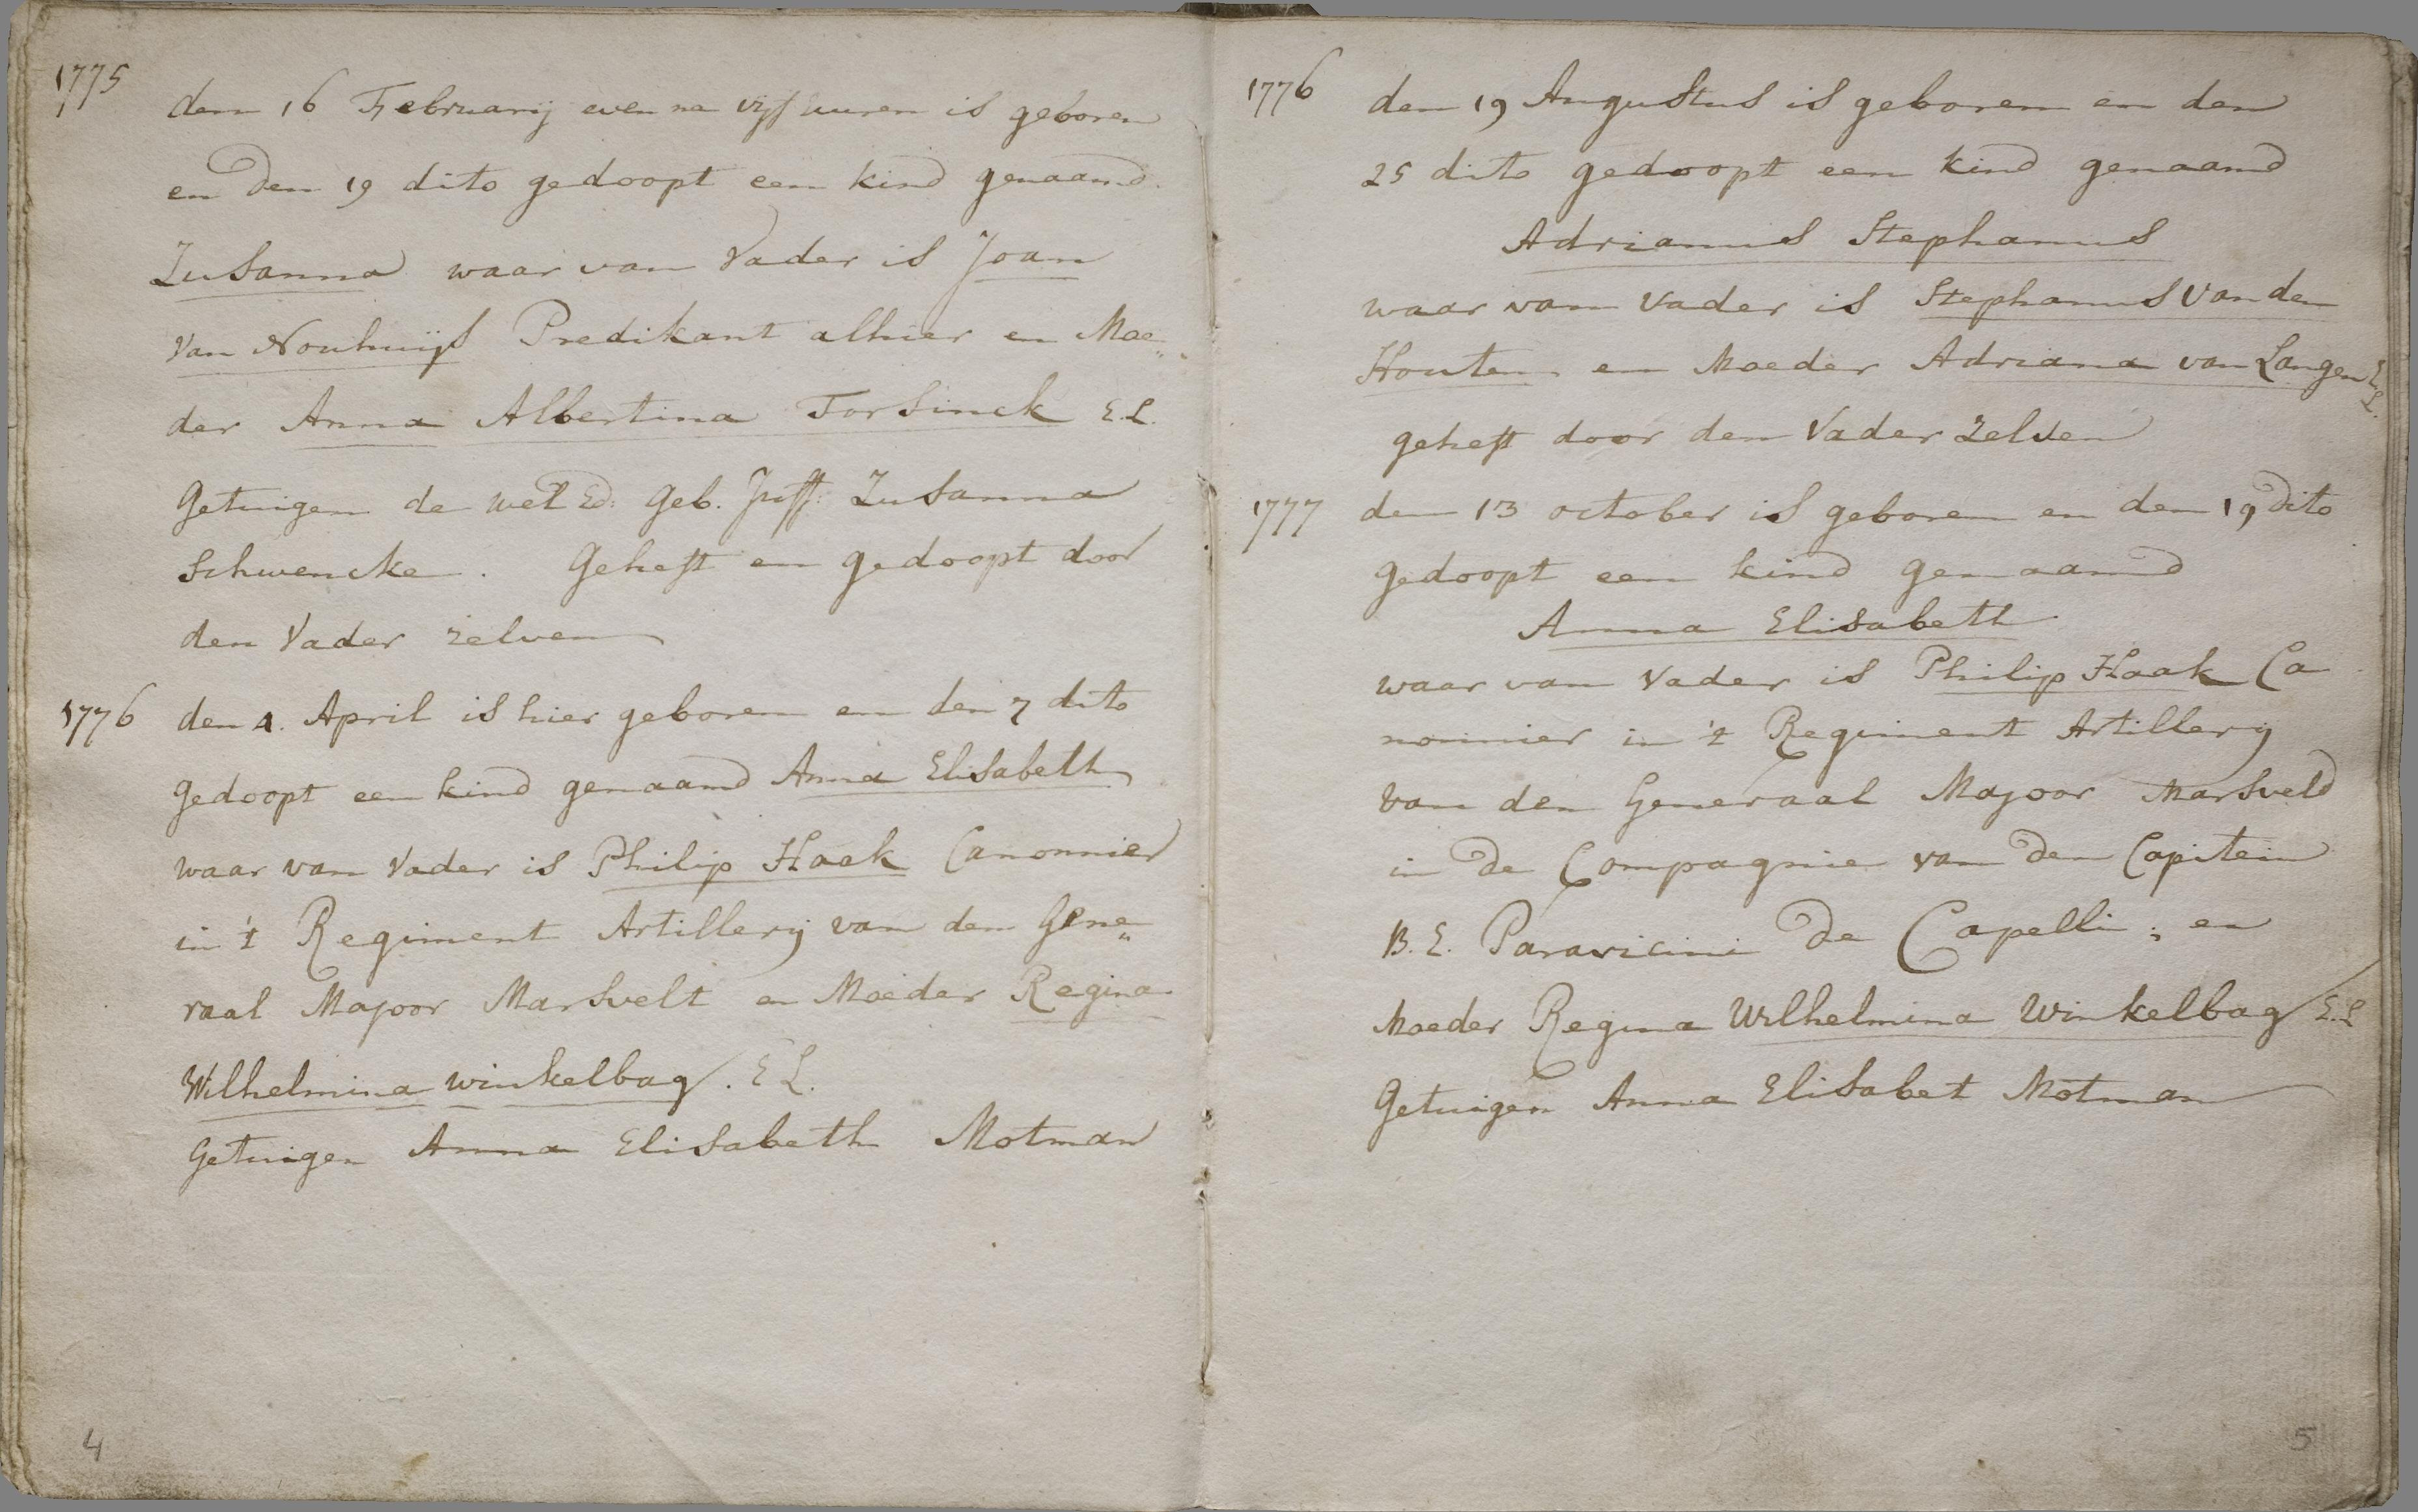 1775
den 16 Februarij even na vijf uuren is geboren
en den 19 dito gedoopt een kind genaamd
Zusanna waar van Vader is Joan
van Nouhuijs Predikant alhier en Moe„
der Anna Albertina Forsinck E.L.
Getuigen de wel Ed: Geb. Juff: Zusanna
Schwencke. Geheft en gedoopt door
den Vader zelven
1776 den 4. April is hier geboren en den 7 dito
gedoopt een kind genaamd Anna Elisabeth
waar van Vader is Philip Haak Canonnier
in 't Regiment Artillerij van den Gene„
raal Majoor Marsvelt en Moeder Regina
Wilhelmina winkelbag. E L.
Getuigen Anna Elisabeth Motman
4
1776 den 19 Augustus is geboren en den
25 dito gedoopt een kind genaamd
Adrianus Stephanus
waar van Vader is Stephanus Van den
Houten en Moeder Adriana van Langen E.L.
geheft door den Vader zelven
1777 den 13 october is geboren en den 19 dito
gedoopt een kind genaamd
Anna Elisabeth
waar van Vader is Philip Haak Ca
nonnier in 't Regiment Artillerij
van den Generaal Majoor Marsveld
in de Compagnie van den Capitein
B. E. Paravicini de Capelli; en
Moeder Regina Wilhelmina Winkelbag E.L
Getuigen Anna Elisabet Motman
5